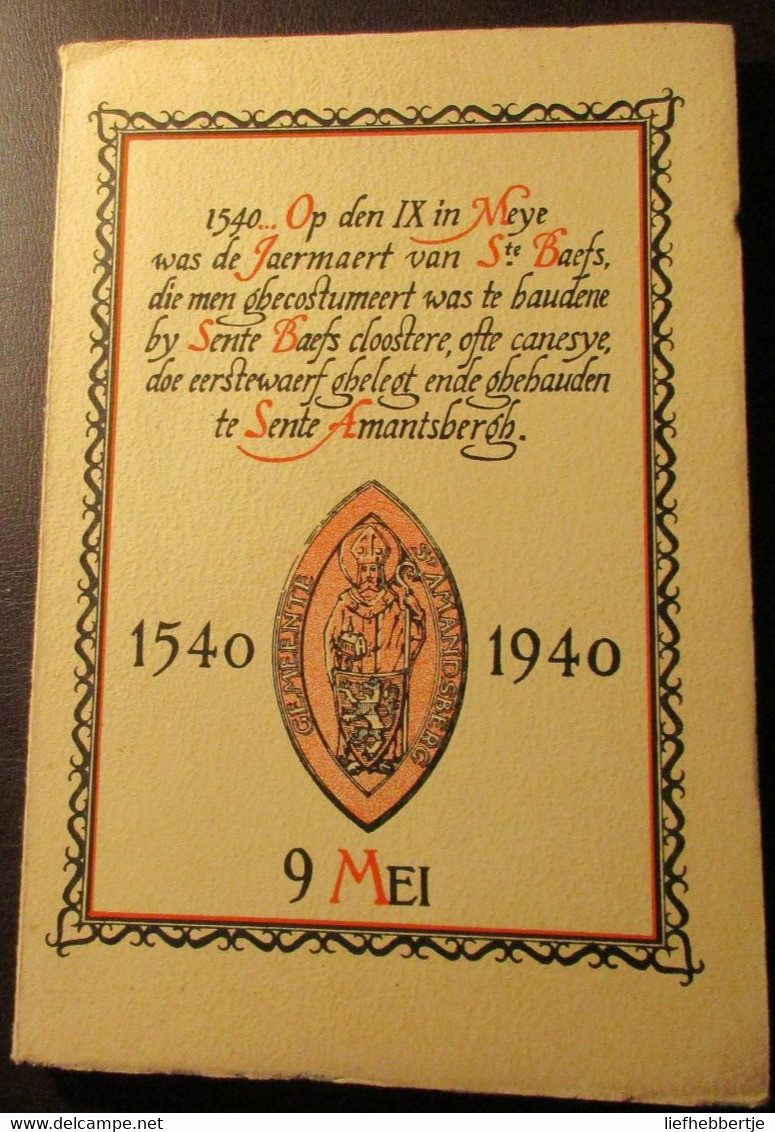 1540... Op den IX in Meye
was de Jaermaert van Ste Baefs,
die men ghecostumeert was te haudene
by Sente Baefs cloostere, ofte canesye,
doe eerstewaerf ghelegt ende ghehauden
te Sente Amantsbergh.
GEMEENTE ST AMANDSBERG
1540 1940
9 MEI
delcampe.net liefhebbertje